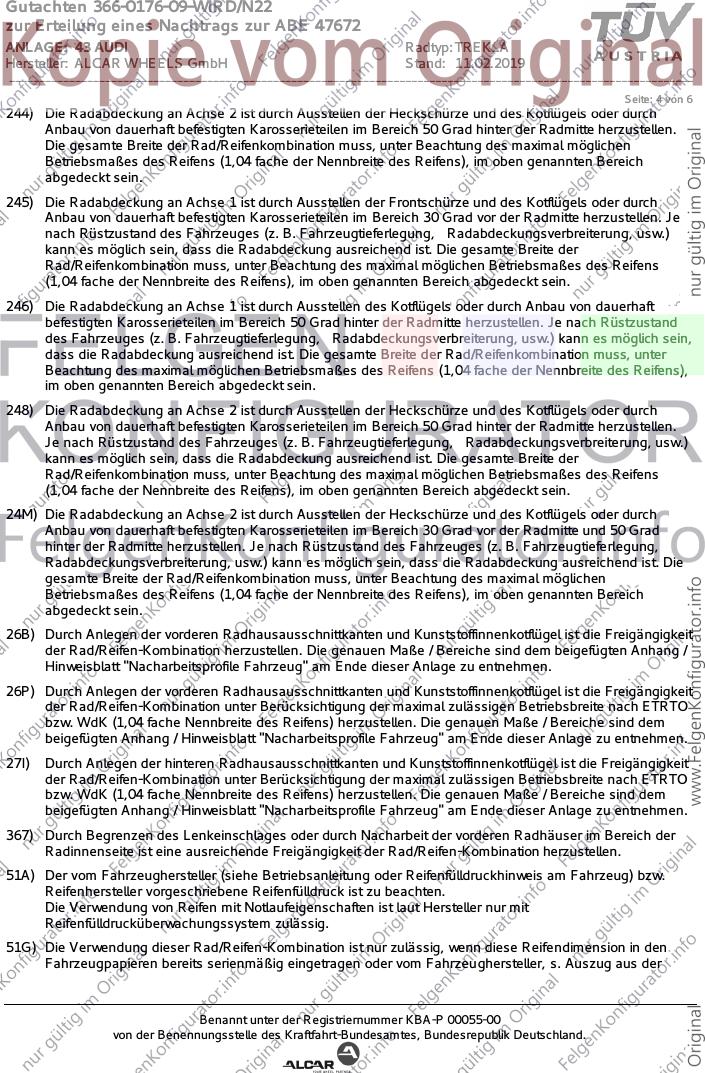 Gutachten 366-0176-09-WIRD/N22
zur Erteilung eines Nachtrags zur ABE 47672
ANLAGE: 43 AUDI
Radtyp: TREK..A
Hersteller: ALCAR WHEELS GmbH
Stand: 11.02.2019
TÜV
AUSTRIA
Kopie vom Original
Seite: 4 von 6
244) Die Radabdeckung an Achse 2 ist durch Ausstellen der Heckschürze und des Kotflügels oder durch
Anbau von dauerhaft befestigten Karosserieteilen im Bereich 50 Grad hinter der Radmitte herzustellen.
Die gesamte Breite der Rad/Reifenkombination muss, unter Beachtung des maximal möglichen
Betriebsmaßes des Reifens (1,04 fache der Nennbreite des Reifens), im oben genannten Bereich
abgedeckt sein.
245) Die Radabdeckung an Achse 1 ist durch Ausstellen der Frontschürze und des Kotflügels oder durch
Anbau von dauerhaft befestigten Karosserieteilen im Bereich 30 Grad vor der Radmitte herzustellen. Je
nach Rüstzustand des Fahrzeuges (z. B. Fahrzeugtieferlegung, Radabdeckungsverbreiterung, usw.)
kann es möglich sein, dass die Radabdeckung ausreichend ist. Die gesamte Breite der
Rad/Reifenkombination muss, unter Beachtung des maximal möglichen Betriebsmaßes des Reifens
(1,04 fache der Nennbreite des Reifens), im oben genannten Bereich abgedeckt sein.
246) Die Radabdeckung an Achse 1 ist durch Ausstellen des Kotflügels oder durch Anbau von dauerhaft
befestigten Karosserieteilen im Bereich 50 Grad hinter der Radmitte herzustellen. Je nach Rüstzustand
des Fahrzeuges (z. B. Fahrzeugtieferlegung, Radabdeckungsverbreiterung, usw.) kann es möglich sein,
dass die Radabdeckung ausreichend ist. Die gesamte Breite der Rad/Reifenkombination muss, unter
Beachtung des maximal möglichen Betriebsmaßes des Reifens (1,04 fache der Nennbreite des Reifens),
im oben genannten Bereich abgedeckt sein.
248) Die Radabdeckung an Achse 2 ist durch Ausstellen der Heckschürze und des Kotflügels oder durch
Anbau von dauerhaft befestigten Karosserieteilen im Bereich 50 Grad hinter der Radmitte herzustellen.
Je nach Rüstzustand des Fahrzeuges (z. B. Fahrzeugtieferlegung, Radabdeckungsverbreiterung, usw.)
kann es möglich sein, dass die Radabdeckung ausreichend ist. Die gesamte Breite der
Rad/Reifenkombination muss, unter Beachtung des maximal möglichen Betriebsmaßes des Reifens
(1,04 fache der Nennbreite des Reifens), im oben genannten Bereich abgedeckt sein.
24M) Die Radabdeckung an Achse 2 ist durch Ausstellen der Heckschürze und des Kotflügels oder durch
Anbau von dauerhaft befestigten Karosserieteilen im Bereich 30 Grad vor der Radmitte und 50 Grad
hinter der Radmitte herzustellen. Je nach Rüstzustand des Fahrzeuges (z. B. Fahrzeugtieferlegung,
Radabdeckungsverbreiterung, usw.) kann es möglich sein, dass die Radabdeckung ausreichend ist. Die
gesamte Breite der Rad/Reifenkombination muss, unter Beachtung des maximal möglichen
Betriebsmaßes des Reifens (1,04 fache der Nennbreite des Reifens), im oben genannten Bereich
abgedeckt sein.
26B) Durch Anlegen der vorderen Radhausausschnittkanten und Kunststoffinnenkotflügel ist die Freigängigkeit
der Rad/Reifen-Kombination herzustellen. Die genauen Maße / Bereiche sind dem beigefügten Anhang /
Hinweisblatt "Nacharbeitsprofile Fahrzeug" am Ende dieser Anlage zu entnehmen.
26P) Durch Anlegen der vorderen Radhausausschnittkanten und Kunststoffinnenkotflügel ist die Freigängigkeit
der Rad/Reifen-Kombination unter Berücksichtigung der maximal zulässigen Betriebsbreite nach ETRTO
bzw. WdK (1,04 fache Nennbreite des Reifens) herzustellen. Die genauen Maße / Bereiche sind dem
beigefügten Anhang / Hinweisblatt "Nacharbeitsprofile Fahrzeug" am Ende dieser Anlage zu entnehmen.
27I) Durch Anlegen der hinteren Radhausausschnittkanten und Kunststoffinnenkotflügel ist die Freigängigkeit
der Rad/Reifen-Kombination unter Berücksichtigung der maximal zulässigen Betriebsbreite nach ETRTO
bzw. WdK (1,04 fache Nennbreite des Reifens) herzustellen. Die genauen Maße / Bereiche sind dem
beigefügten Anhang / Hinweisblatt "Nacharbeitsprofile Fahrzeug" am Ende dieser Anlage zu entnehmen.
367) Durch Begrenzen des Lenkeinschlages oder durch Nacharbeit der vorderen Radhäuser im Bereich der
Radinnenseite ist eine ausreichende Freigängigkeit der Rad/Reifen-Kombination herzustellen.
51A) Der vom Fahrzeughersteller (siehe Betriebsanleitung oder Reifenfülldruckhinweis am Fahrzeug) bzw.
Reifenhersteller vorgeschriebene Reifenfülldruck ist zu beachten.
Die Verwendung von Reifen mit Notlaufeigenschaften ist laut Hersteller nur mit
Reifenfülldrucküberwachungssystem zulässig.
51G) Die Verwendung dieser Rad/Reifen-Kombination ist nur zulässig, wenn diese Reifendimension in den
Fahrzeugpapieren bereits serienmäßig eingetragen oder vom Fahrzeughersteller, s. Auszug aus der
Benannt unter der Registriernummer KBA-P 00055-00
von der Benennungsstelle des Kraftfahrt-Bundesamtes, Bundesrepublik Deutschland.
ALCAR
FELGEN
KONFIGURATOR
FelgenKonfigurator.info
nur gültig im Original
www.FelgenKonfigurator.info
Original